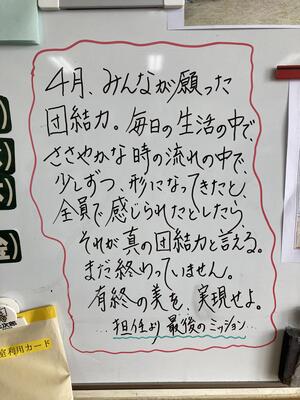 4月、みんなが願った
団結力。毎日の生活の中で、
ささやかな時の流れの中で、
少しずつ、形になってきたと、
全員で感じられたとしたら、
それが真の団結力と言える。
まだ終わっていません。
有終の美を、実現せよ。
…担任より最後のミッション…
室利用カード